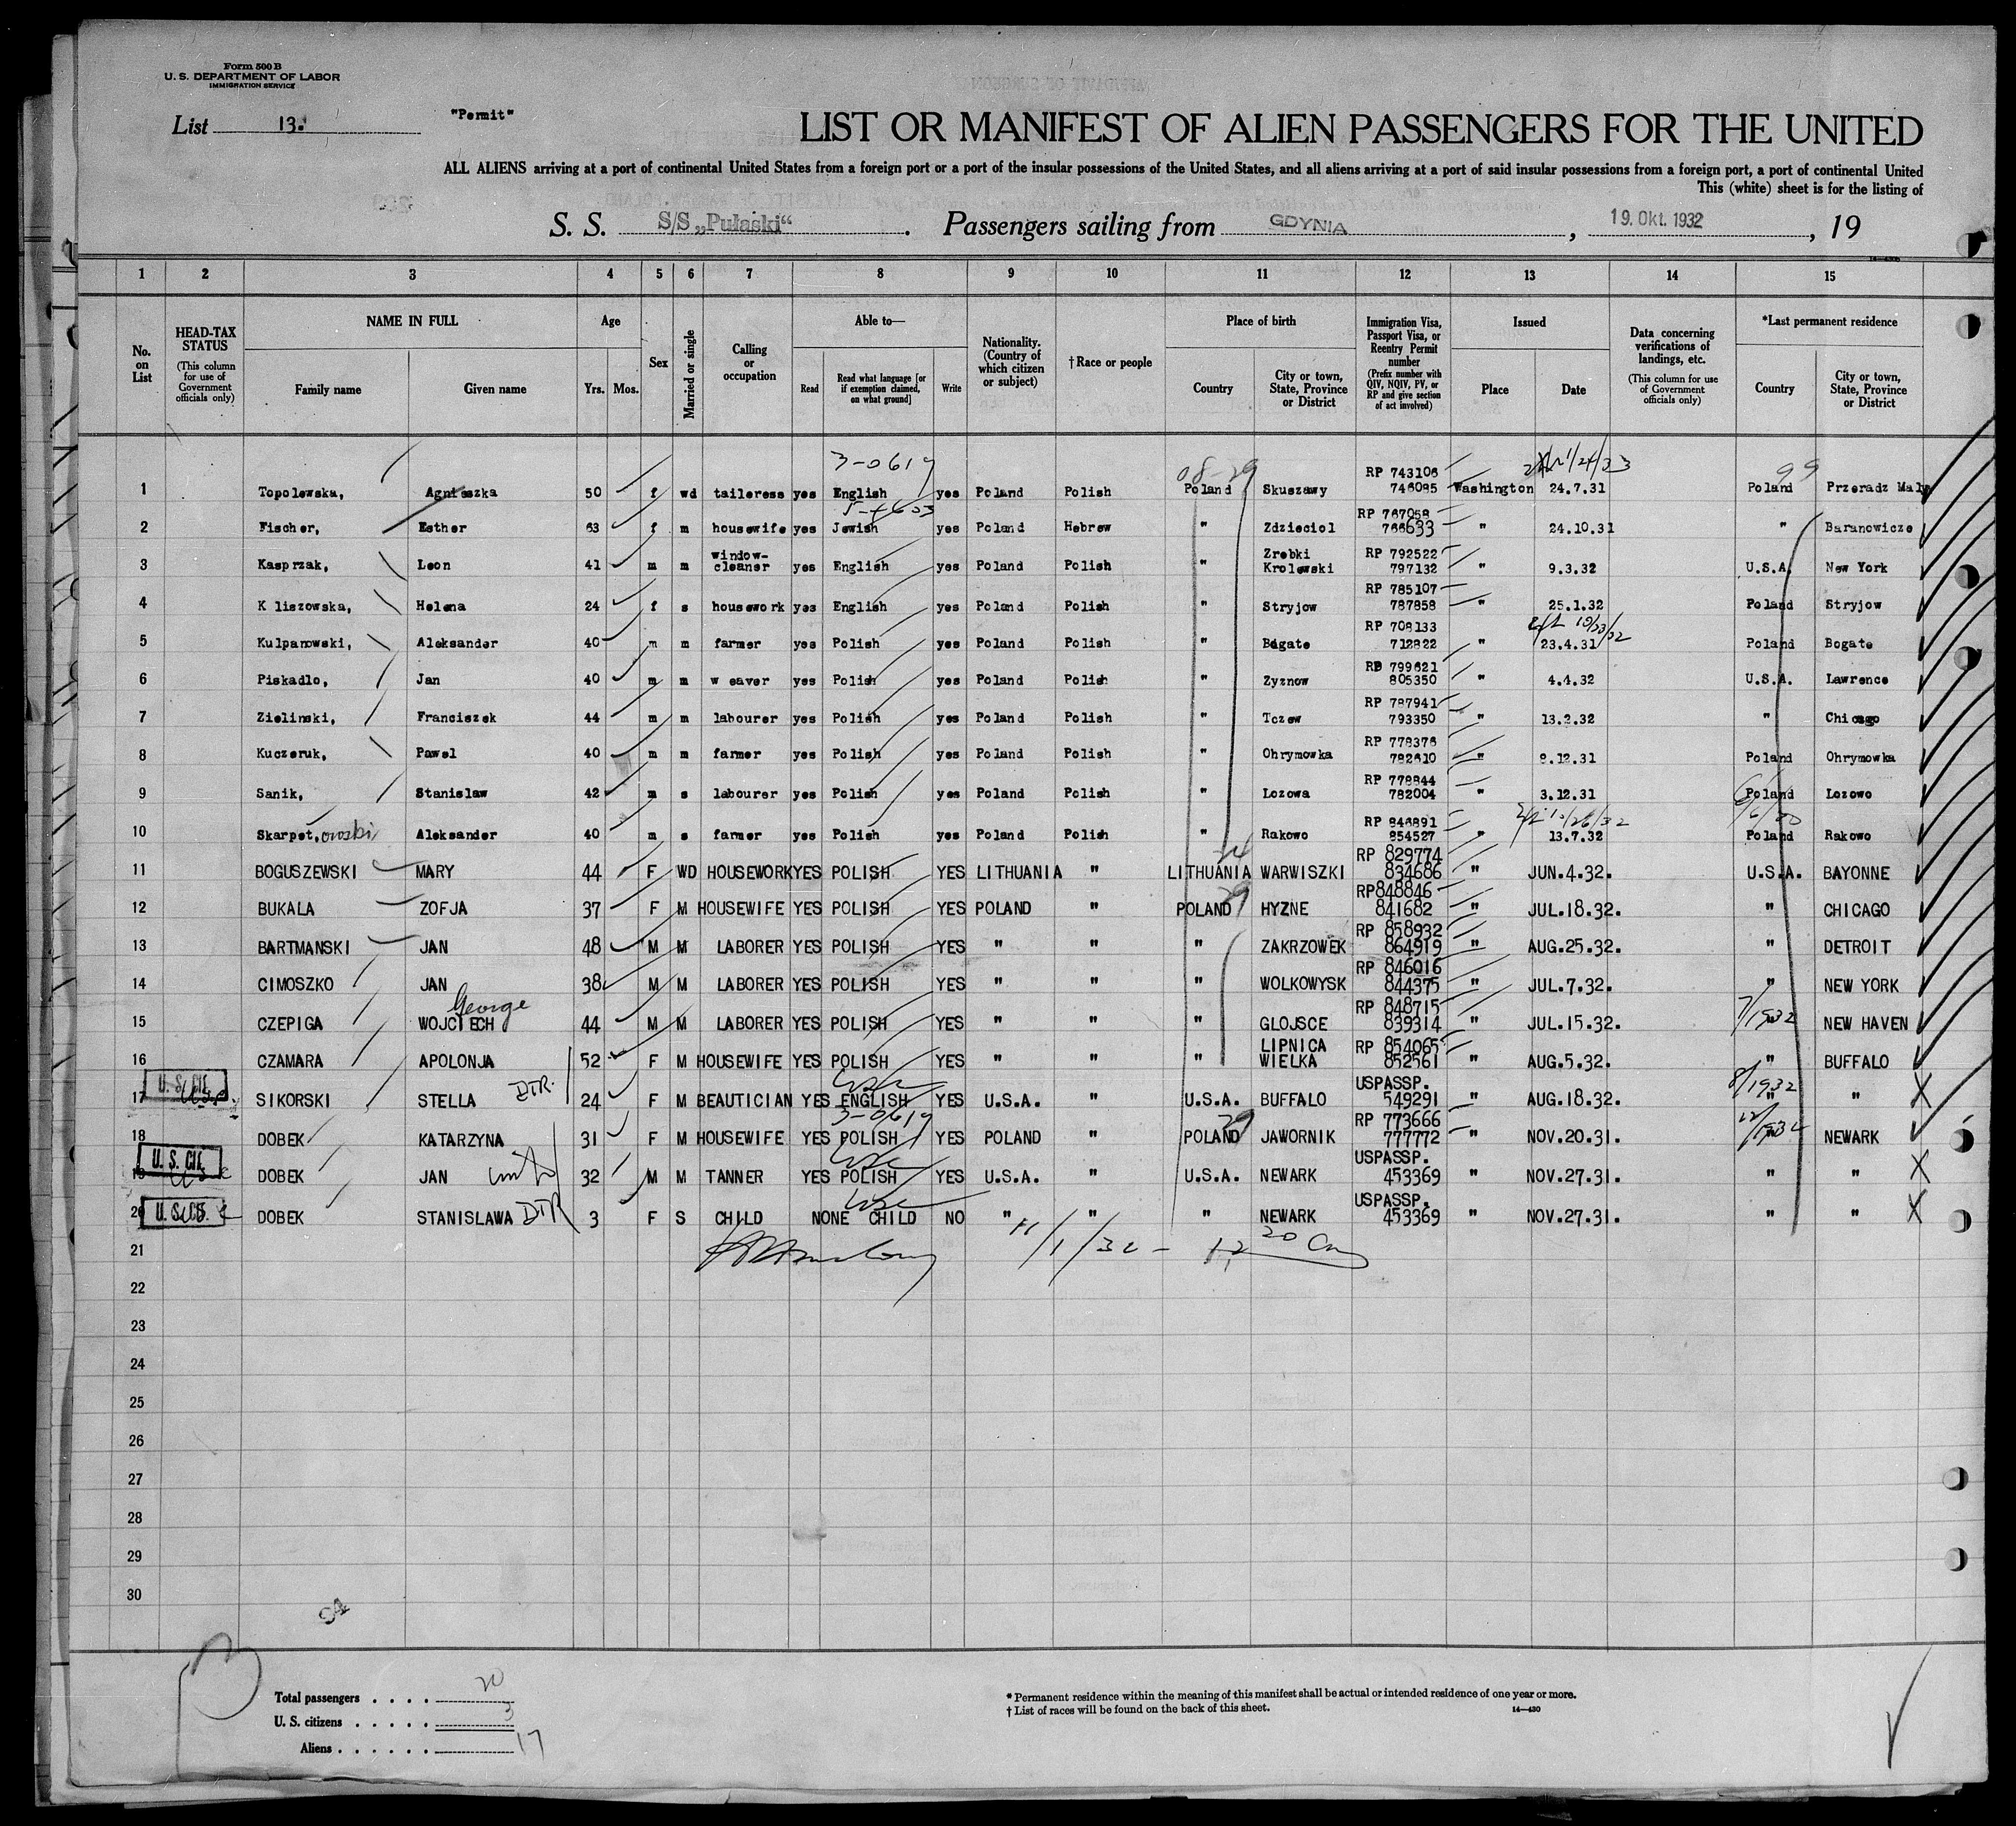 Form 500 B
U. S. DEPARTMENT OF LABOR
IMMIGRATION SERVICE
List 13. "Permit"
LIST OR MANIFEST OF ALIEN PASSENGERS FOR THE UNITED
ALL ALIENS arriving at a port of continental United States from a foreign port or a port of the insular possessions of the United States, and all aliens arriving at a port of said insular possessions from a foreign port, a port of continental United
This (white) sheet is for the listing of
S. S. S/S „Pułaski“. Passengers sailing from GDYNIA, 19. Okt. 1932, 19
14—430b
1 2 3 4 5 6 7 8 9 10 11 12 13 14 15
No. on List
HEAD-TAX STATUS (This column for use of Government officials only)
NAME IN FULL Family name Given name
Age Yrs. Mos.
Sex
Married or single
Calling or occupation
Able to— Read Read what language [or if exemption claimed, on what ground] Write
Nationality. (Country of which citizen or subject)
† Race or people
Place of birth Country City or town, State, Province or District
Immigration Visa, Passport Visa, or Reentry Permit number (Prefix number with QIV, NQIV, PV, or RP and give section of act involved)
Issued Place Date
Data concerning verifications of landings, etc. (This column for use of Government officials only)
*Last permanent residence Country City or town, State, Province or District
3-0619 08-29 1/24/33 99
1 Topolewska, Agnieszka 50 f wd taileress yes English yes Poland Polish Poland Skuszawy RP 743106 746095 Washington 24.7.31 Poland Przeradz Maly
2 Fischer, Esther 63 f m housewife yes Jewish yes Poland Hebrew " Zdzieciol RP 767058 766633 " 24.10.31 " Baranowicze
3 Kasprzak, Leon 41 m m window-cleaner yes English yes Poland Polish " Zrebki Krolewski RP 792522 797132 " 9.3.32 U.S.A. New York
4 K liszowska, Helena 24 f s housework yes English yes Poland Polish " Stryjow RP 785107 787858 " 25.1.32 Poland Stryjow
5 Kulpanowski, Aleksander 40 m m farmer yes Polish yes Poland Polish " Bogate RP 708133 712822 " 23.4.31 Poland Bogate
6 Piskadlo, Jan 40 m m w eaver yes Polish yes Poland Polish " Zyznow RP 799621 805350 " 4.4.32 U.S.A. Lawrence
7 Zielinski, Franciszek 44 m m labourer yes Polish yes Poland Polish " Tczew RP 787941 793350 " 13.2.32 " Chicago
8 Kuczeruk, Pawel 40 m m farmer yes Polish yes Poland Polish " Ohrymowka RP 778376 782610 " 9.12.31 Poland Ohrymowka
9 Sanik, Stanislaw 42 m s labourer yes Polish yes Poland Polish " Lozowa RP 778844 782004 " 3.12.31 Poland Lozowo
10 Skarpet,owski Aleksander 40 m s farmer yes Polish yes Poland Polish " Rakowo RP 846891 854527 " 13.7.32 Poland Rakowo
11 BOGUSZEWSKI MARY 44 F WD HOUSEWORK YES POLISH YES LITHUANIA " LITHUANIA WARWISZKI RP 829774 834686 " JUN.4.32. U.S.A. BAYONNE
12 BUKALA ZOFJA 37 F M HOUSEWIFE YES POLISH YES POLAND " POLAND HYZNE RP848846 841682 " JUL.18.32. " CHICAGO
13 BARTMANSKI JAN 48 M M LABORER YES POLISH YES " " " ZAKRZOWEK RP 858932 864919 " AUG.25.32. " DETROIT
14 CIMOSZKO JAN 38 M M LABORER YES POLISH YES " " " WOLKOWYSK RP 846016 844375 " JUL.7.32. " NEW YORK
George
15 CZEPIGA WOJCIECH 44 M M LABORER YES POLISH YES " " " GLOJSCE RP 848715 839314 " JUL.15.32. " NEW HAVEN
16 CZAMARA APOLONJA 52 F M HOUSEWIFE YES POLISH YES " " " LIPNICA WIELKA RP 854065 852561 " AUG.5.32. " BUFFALO
U. S. CIT.
17 SIKORSKI STELLA DTR. 24 F M BEAUTICIAN YES ENGLISH YES U.S.A. " U.S.A. BUFFALO USPASSP. 549291 " AUG.18.32. " "
3-0619
18 DOBEK KATARZYNA 31 F M HOUSEWIFE YES POLISH YES POLAND " POLAND JAWORNIK RP 773666 777772 " NOV.20.31. " NEWARK
U. S. CIT.
19 DOBEK JAN 32 M M TANNER YES POLISH YES U.S.A. " U.S.A. NEWARK USPASSP. 453369 " NOV.27.31. " "
U. S. CIT.
20 DOBEK STANISLAWA DTR 3 F S CHILD NONE CHILD NO " " " NEWARK USPASSP. 453369 " NOV.27.31. " "
21 11/1/32 -
22
23
24
25
26
27
28
29
30
94
Total passengers . . . . 20
U. S. citizens . . . . . 3
Aliens . . . . . . 17
* Permanent residence within the meaning of this manifest shall be actual or intended residence of one year or more.
† List of races will be found on the back of this sheet. 14—430